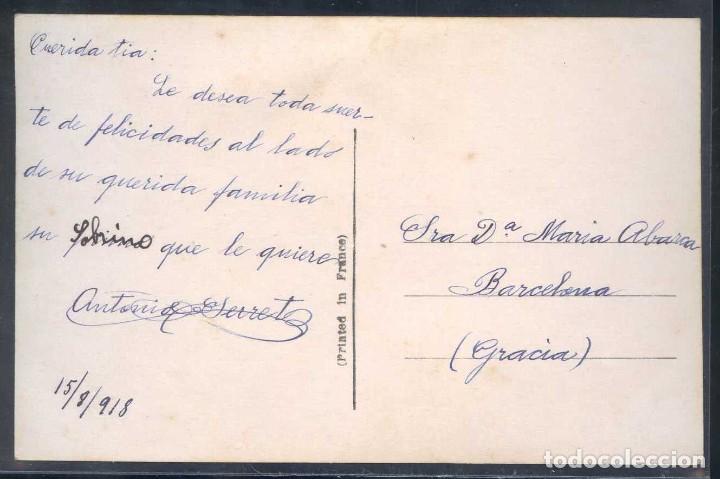 Querida tia:
Le desea toda suer-
te de felicidades al lado
de su querida familia
su Sobrino que le quiere
Antonio Serret
15/8/918
(Printed in France)
Sra Dª Maria Abarca
Barcelona
(Gracia)
todocoleccion.net